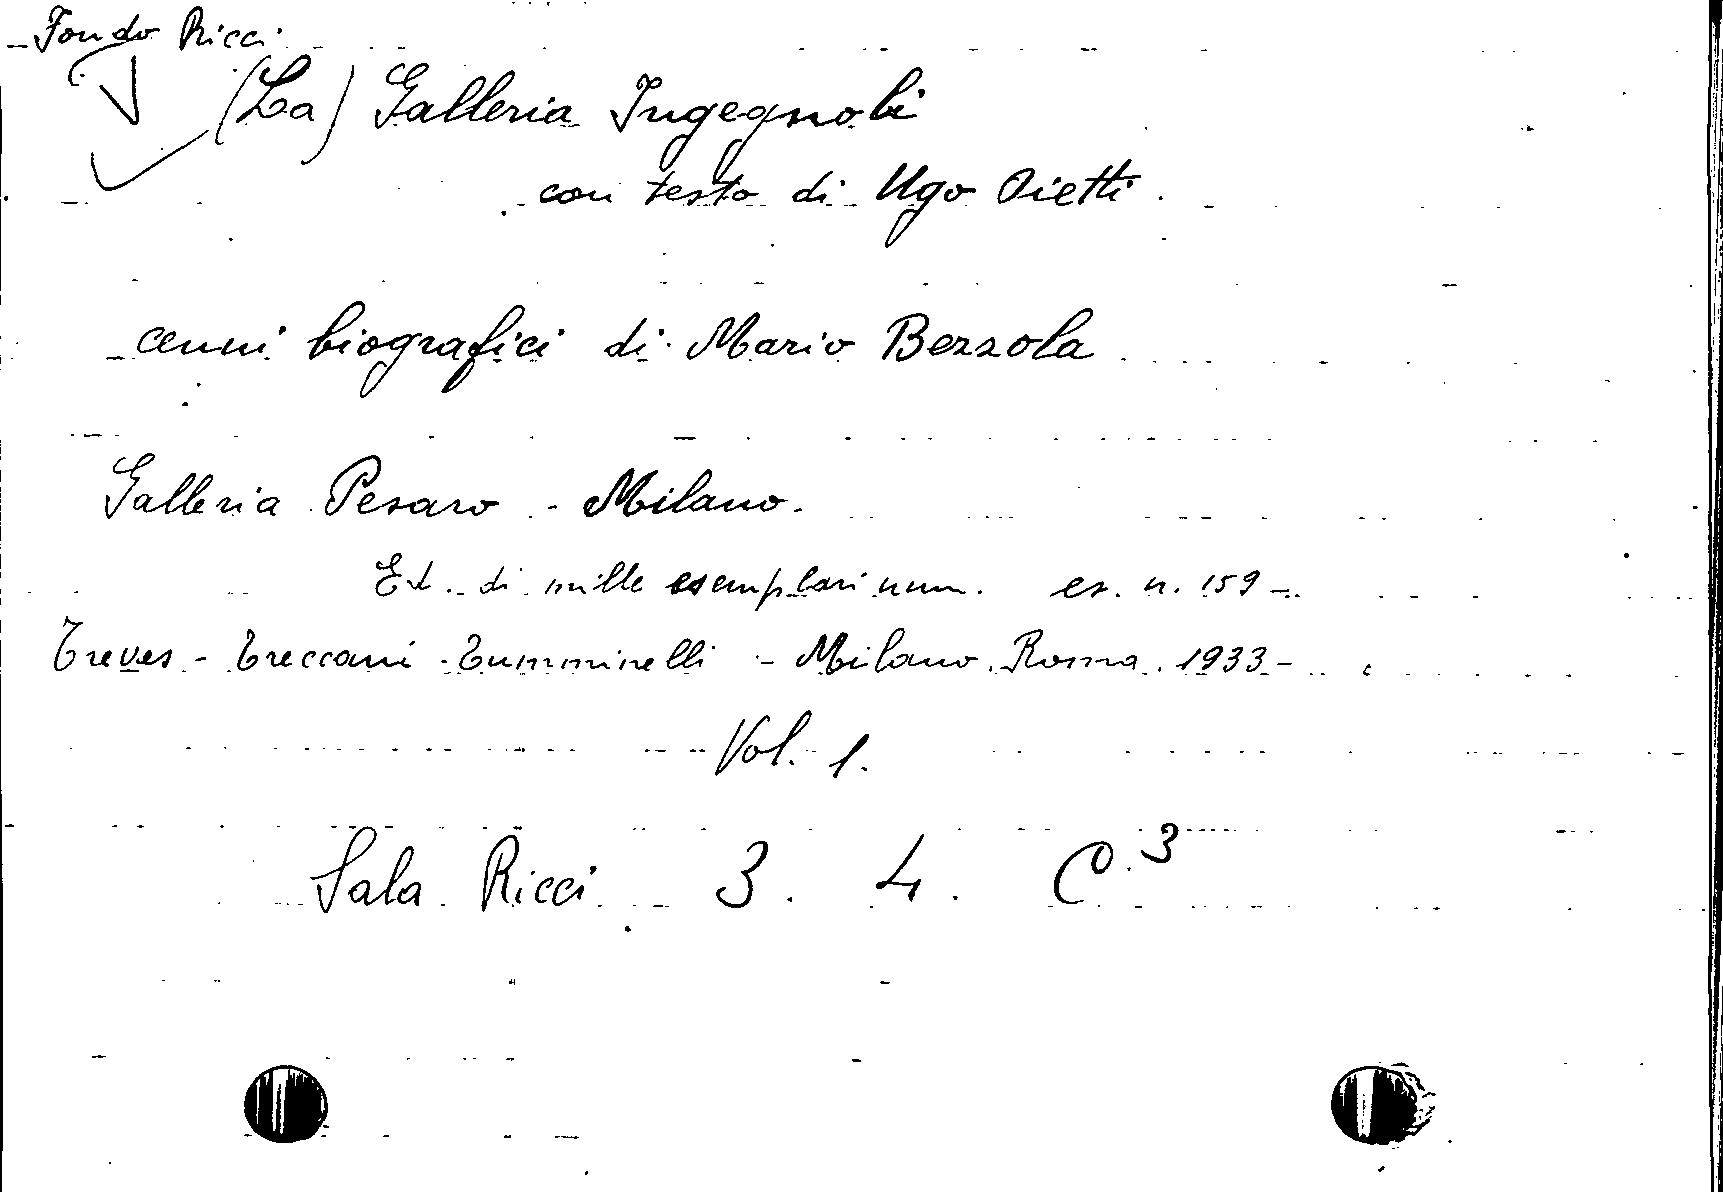 Fondo Ricci
(La) Galleria Ingegnoli
con testo di Ugo Oietti.
cenni biografici di Mario Bezzola
Galleria Pesaro - Milano.
Ed. di mille esemplari num. es. n. 159 -
Treves - Treccani - Tumminelli - Milano. Roma. 1933 -
Vol. 1.
Sala Ricci 3. 4. C.3